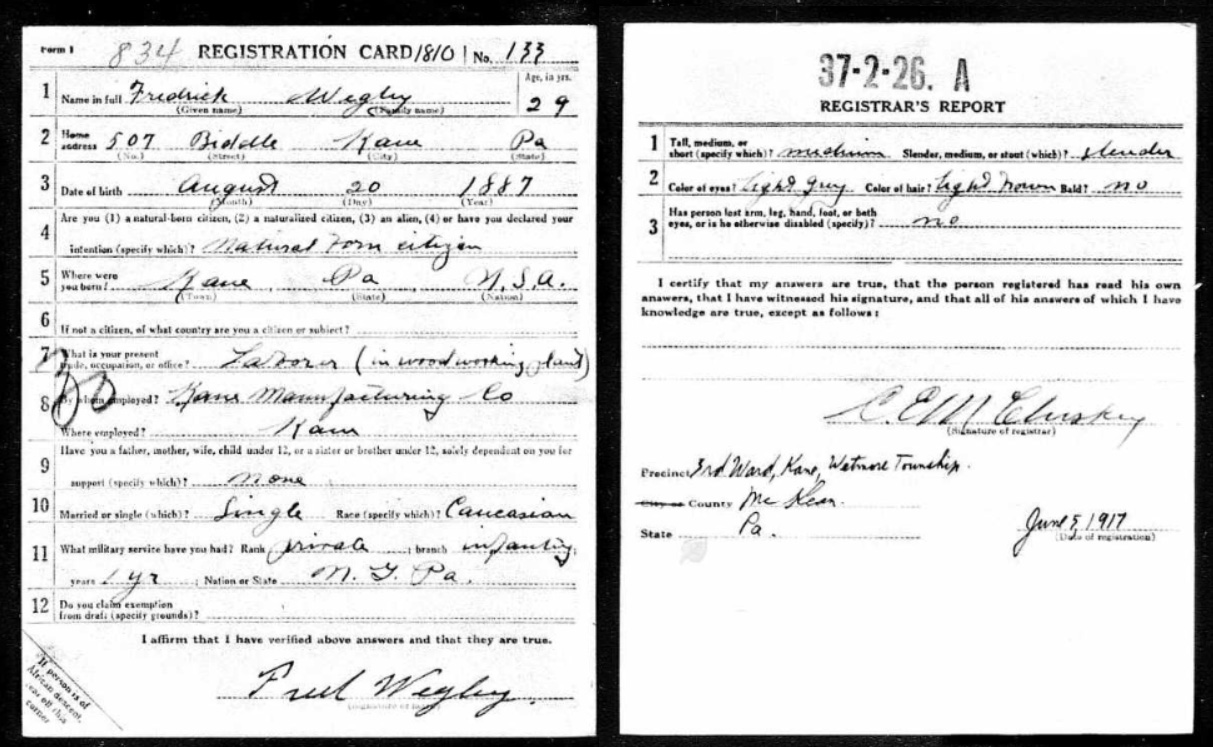 Form 1 834 REGISTRATION CARD 1810 No. 133
1 Name in full Fredrick Wegley Age, in yrs. 29
(Given name) (Family name)
2 Home address 507 Biddle Kane Pa
(No.) (Street) (City) (State)
3 Date of birth August 20 1887
(Month) (Day) (Year)
4 Are you (1) a natural-born citizen, (2) a naturalized citizen, (3) an alien, (4) or have you declared your
intention (specify which)? Natural born citizen
5 Where were you born? Kane Pa U.S.A.
(Town) (State) (Nation)
6 If not a citizen, of what country are you a citizen or subject?
7 What is your present trade, occupation, or office? Laborer (in woodworking plant)
8 By whom employed? Kane Manufacturing Co
Where employed? Kane
9 Have you a father, mother, wife, child under 12, or a sister or brother under 12, solely dependent on you for
support (specify which)? None
10 Married or single (which)? Single Race (specify which)? Caucasian
11 What military service have you had? Rank private ; branch infantry ;
years 1 yr ; Nation or State N. G. Pa.
12 Do you claim exemption
from draft (specify grounds)?
I affirm that I have verified above answers and that they are true.
Fred Wegley.
(Signature or mark)
If person is of
African descent,
tear off this
corner
37-2-26. A
REGISTRAR'S REPORT
1 Tall, medium, or
short (specify which)? medium Slender, medium, or stout (which)? slender
2 Color of eyes? Light Grey Color of hair? Light Brown Bald? no
3 Has person lost arm, leg, hand, foot, or both
eyes, or is he otherwise disabled (specify)? no
I certify that my answers are true, that the person registered has read his own
answers, that I have witnessed his signature, and that all of his answers of which I have
knowledge are true, except as follows:
C. E. McCluskey
(Signature of registrar)
Precinct 3rd Ward, Kane, Wetmore Township.
City or County McKean.
State Pa. June 5, 1917
(Date of registration)